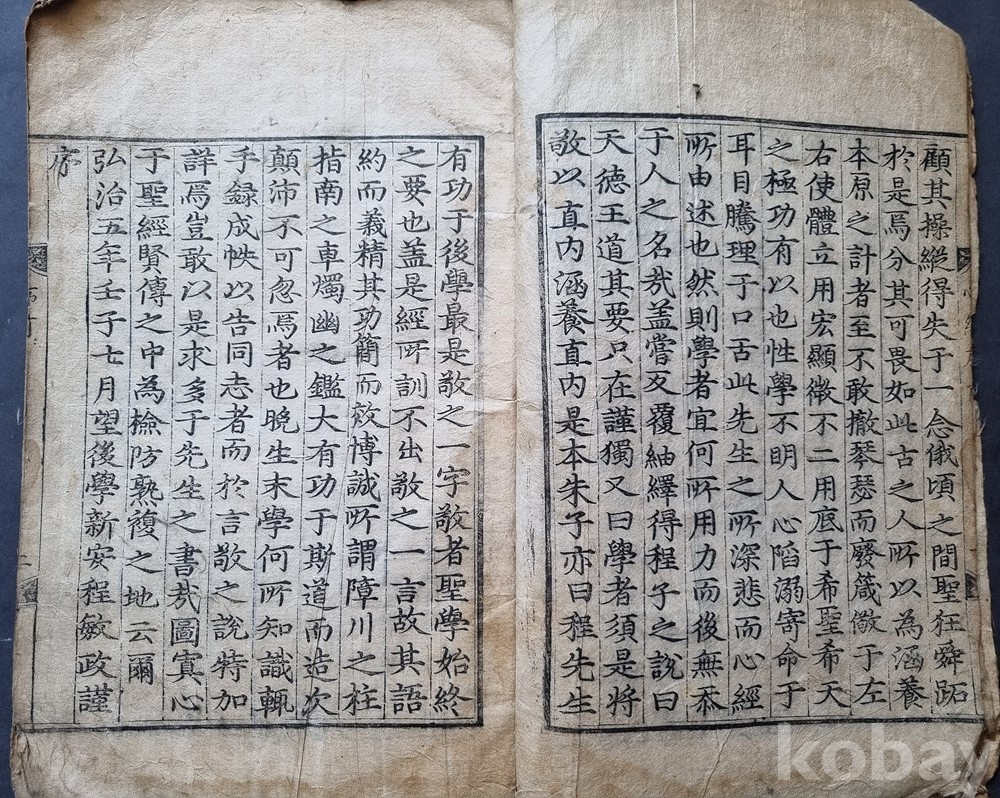 顧其操縱得失于一念俄頃之間聖狂舜跖
於是焉分其可畏如此古之人所以為涵養
本原之計者至不敢撤琴瑟而廢箴儆于左
右使體立用宏顯微不二用底于希聖希天
之極功有以也性學不明人心陷溺寄命于
耳目騰理于口舌此先生之所深悲而心經
所由述也然則學者宜何所用力而後無忝
于人之名哉盖嘗反覆紬繹得程子之說曰
天德王道其要只在謹獨又曰學者須是將
敬以直內涵養直內是本朱子亦曰程先生
有功于後學最是敬之一字敬者聖學始終
之要也盖是經所訓不出敬之一言故其語
約而義精其功簡而效博誠所謂障川之柱
指南之車燭幽之鑑大有功于斯道而造次
顛沛不可忽焉者也晚生末學何所知識輒
手録成帙以告同志者而於言敬之說特加
詳焉豈敢以是求多于先生之書哉圖寘心
于聖經賢傳之中為檢防熟複之地云爾
弘治五年壬子七月望後學新安程敏政謹
序
kobay